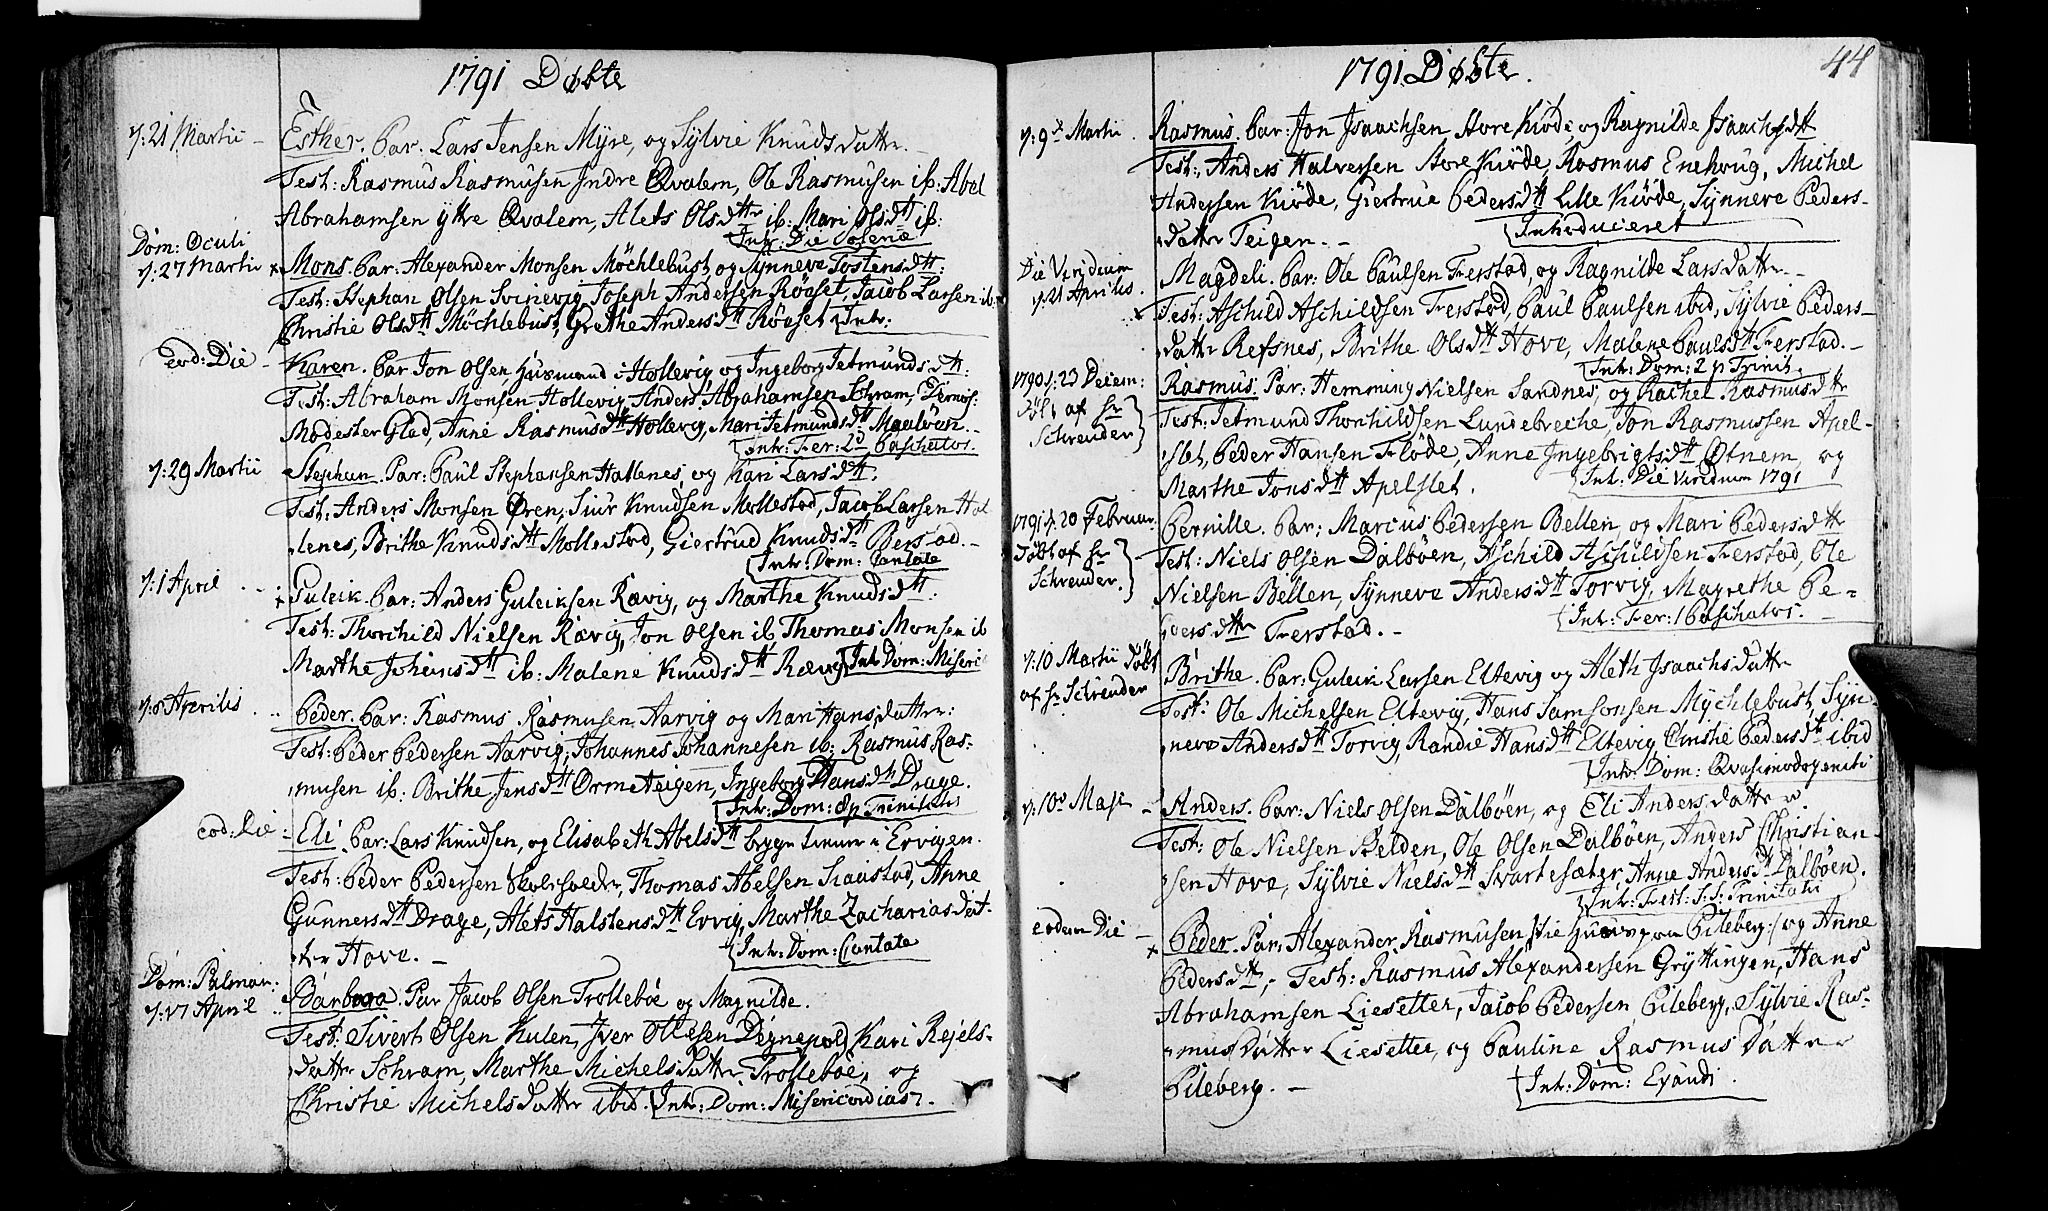 1791 Døbte
7: 21 Martii - Esther. Par. Lars Jensen Myre, og Sylvie Knudsdatter. -
Test: Rasmus Rasmusen Indre Qvalem, Ole Rasmusen ib: Abel
Abrahamsen ytre Qvalem, Alets Olsdtter ib: Mari Olsdtt ib:
Intr: Die
Dom: Oculi
7: 27 Martii Mons. Par: Alexander Monsen Möchlebust, og Synneve Tostensdtt:
Test: Stephan Olsen Svinevig, Joseph Andersen Röaset, Jacob Larsen ib:
Christie Olsdtt Möchlebust, Grethe Andersdtt Röaset Intr:
eod: Die - Karen. Par Jon Olsen, Huusmand i Hollevig og Ingeborg Jetmundsdtt:
Test: Abraham Monsen Hollevig, Anders Abrahamsen Schram,
Modester Glad, Anne Rasmusdtt Hollevig, Mari Jetmundsdtt Maalöen
Intr: Fer: 2d Paschatos.
7: 29 Martii Stephan. Par: Paul Stephansen Hallenes, og Kari Larsdtt.
Test: Anders Monsen Øren, Siur Knudsen Mollestad, Jacob Larsen Hol
lenes, Brithe Knudsdtt Mollestad, Giertrud Knudsdtt Berstad. -
Intr: Dom: Cantate
7: 1 April Guleik. Par: Anders Guleiksen Rævig, og Marthe Knudsdtt.
Test: Thorchild Nielsen Rævig, Jon Olsen ib Thomas Monsen ib
Marthe Johansdtt ib: Malene Knudsdtt Rævig Intr Dom: Miseric
7: 8 Aprilis Peder. Par: Rasmus Rasmusen Aarvig og Mari Hansdatter:
Test: Peder Pedersen Aarvig, Johannes Johannesen ib: Rasmus Ras-
musen ib: Brithe Jensdtt Ormeteigen, Ingeborg Hansdtt Drage.
Intr: Dom: 8 p Trinitatis
eod: Die - Eli. Par: Lars Knudsen, og Elisabeth Abelsdtt i Ervigen.
Test: Peder Pedersen Skoleholder, Thomas Abelsen Staastad, Anne
Gunnersdtt Drage, Alets Halstensdtt Ervig, Marthe Zachariasdat-
ter Hove. -
Intr: Dom: Cantate
Dom: Palmar:
7: 17 April Barbara. Par Jacob Olsen Trolleböe og Magnilde.
Test: Sivert Olsen Hulen, Iver Ottesen Degnepold, Kari Rejels-
datter Schram, Marthe Michelsdatter Trolleböe, og
Christie Michelsdatter ibid. Intr: Dom: Misericordias.
1791 Døbte. 44
7: 9de Martii. Rasmus. Par: Jon Isaachsen Store Kiöde og Ragnilde Isaachsdtt
Test: Anders Halversen Store Kiöde, Rasmus Enehoug, Michel
Andersen Kiöde, Giertrue Pedersdtt Lille Kiöde, Synneve Peders-
datter Teigen. -
Introduceret
Die Viridium
7: 21 Aprilis. Magdeli. Par: Ole Paulsen Ferstad, og Ragnilde Larsdatter. -
Test: Aschild Aschildsen Ferstad, Paul Paulsen ibid, Sylvie Peders-
datter Refsnes, Brithe Olsdtt Hove, Malene Paulsdtt Ferstad. -
Intr: Dom: 2 p Trinit.
1790 d: 23 Decem:
Döbt af Hr
Schreuder Rasmus. Par: Hemming Nielsen Sandnes, og Rachel Rasmusdtt
Test: Jetmund Thorchildsen Lundebreche, Jon Rasmussen Apel-
slet, Peder Hansen Flöde, Anne Ingebrigtsdtt Otnem, og
Marthe Jonsdtt Apelslet.
Intr: Die Viridium 1791
1791 d: 20 Februar:
Döbt af Hr
Schreuder. Pernille. Par: Marcus Pedersen Bellen, og Mari Pedersdtt
Test: Niels Olsen Dalböen, Aschild Aschildsen Ferstad, Ole
Nielsen Bellen, Synneve Andersdtt Torvig, Magrethe Pe-
dersdtter Ferstad. -
Intr: Fer: 1 Paschatos.
7: 10 Martii Döbt
af Hr Schreuder Brithe. Par: Guleik Larsen Eltevig og Aleth Isaachsdatter
Test: Ole Michelsen Eltevig, Hans Samsonsen Mychlebust, Syn-
neve Andersdtt Torvig, Randie Hansdtt Eltevig, Christie Pedersdtt ibid
Intr: Dom: Qvasimodogeniti
7: 10de Maji - Anders. Par: Niels Olsen Dalböen, og Eli Andersdatter.
Test: Ole Nielsen Belden, Ole Olsen Dalböen, Anders Christian-
sen Hove, Sylvie Nielsdtt Svartesæter, Anne Andersdtt Dalböen.
Intr: Fest: S: S: Trinitatis
eodem Die - Peder. Par: Alexander Rasmusen paa Pileberg :/ og Anne
Pedersdtt, - Test: Rasmus Alexandersen Gryttingen, Hans
Abrahamsen Liesetter, Jacob Pedersen Pileberg, Sylvie Ras-
musdatter Liesetter, og Pauline Rasmusdatter
Pileberg. -
Intr: Dom: Exaudi.